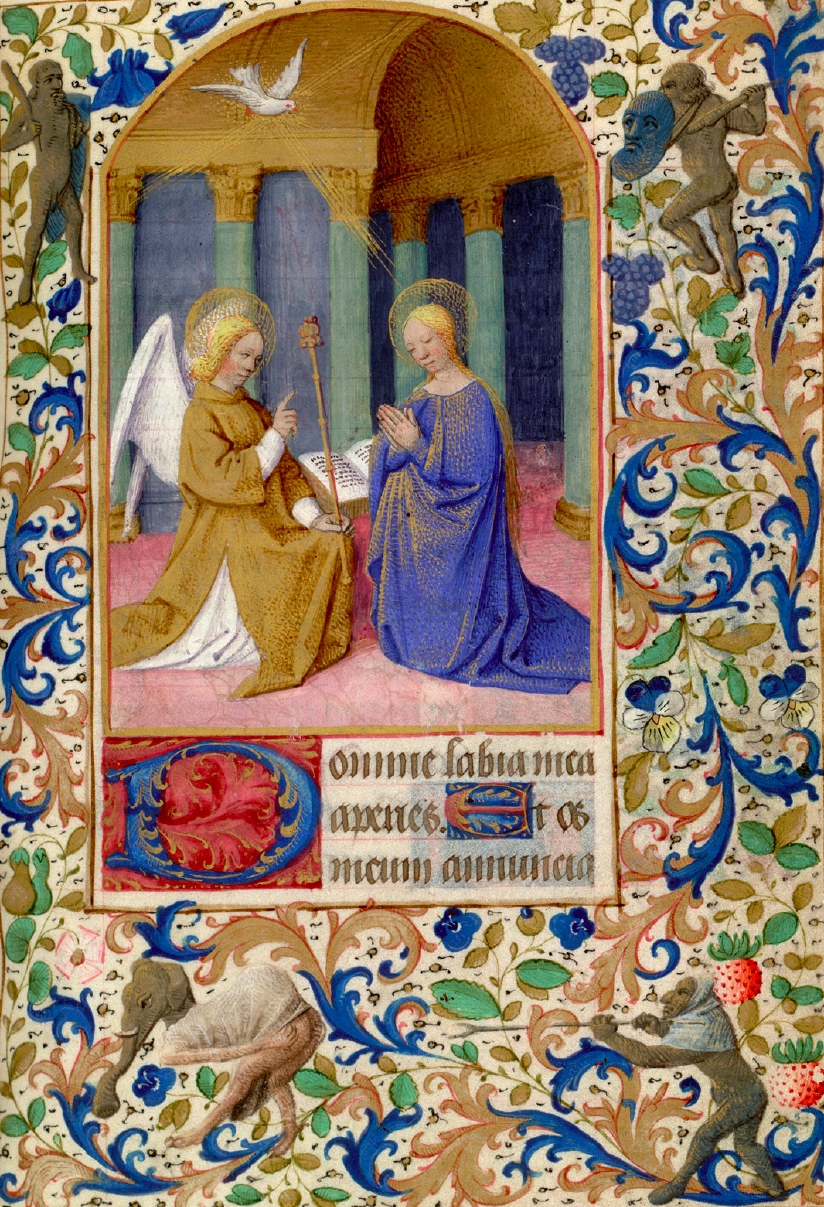 Domine labia mea
aperies. Et os
meum annuncia